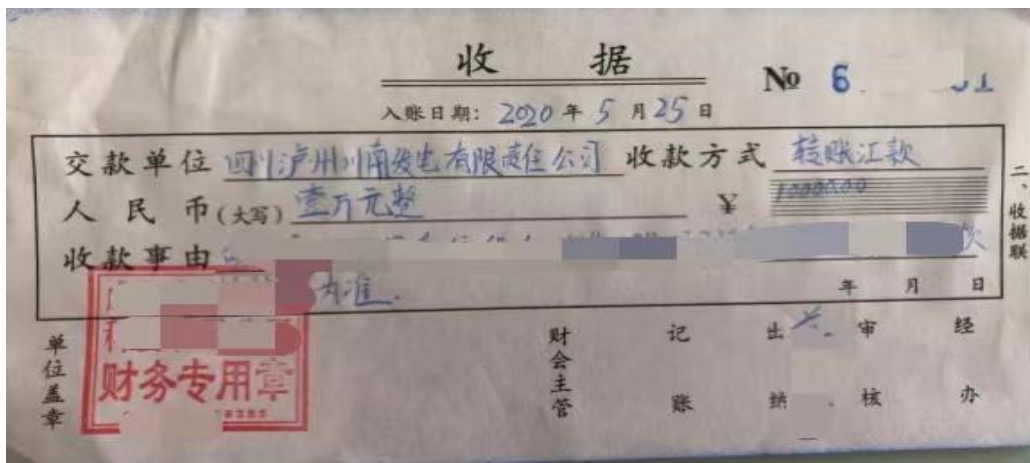 收 据
№ 6
入账日期：2020年5月25日
交款单位 四川泸州川南发电有限责任公司 收款方式 转账汇款
人民币(大写) 壹万元整 ¥ 1000000
收款事由 款
为准.
年 月 日
二、收据联
单位盖章
财务专用章
财会主管
记账
出纳
审核
经办